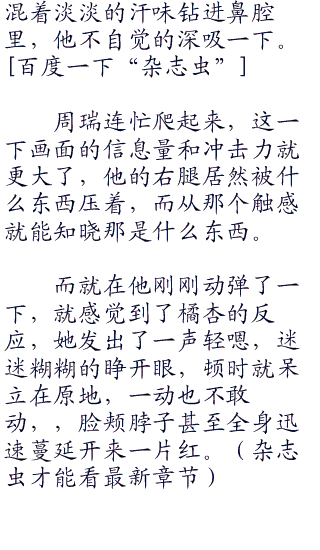 混着淡淡的汗味钻进鼻腔
里，他不自觉的深吸一下。
[百度一下“杂志虫”]
周瑞连忙爬起来，这一
下画面的信息量和冲击力就
更大了，他的右腿居然被什
么东西压着，而从那个触感
就能知晓那是什么东西。
而就在他刚刚动弹了一
下，就感觉到了橘杏的反
应，她发出了一声轻嗯，迷
迷糊糊的睁开眼，顿时就呆
立在原地，一动也不敢
动，，脸颊脖子甚至全身迅
速蔓延开来一片红。（杂志
虫才能看最新章节）